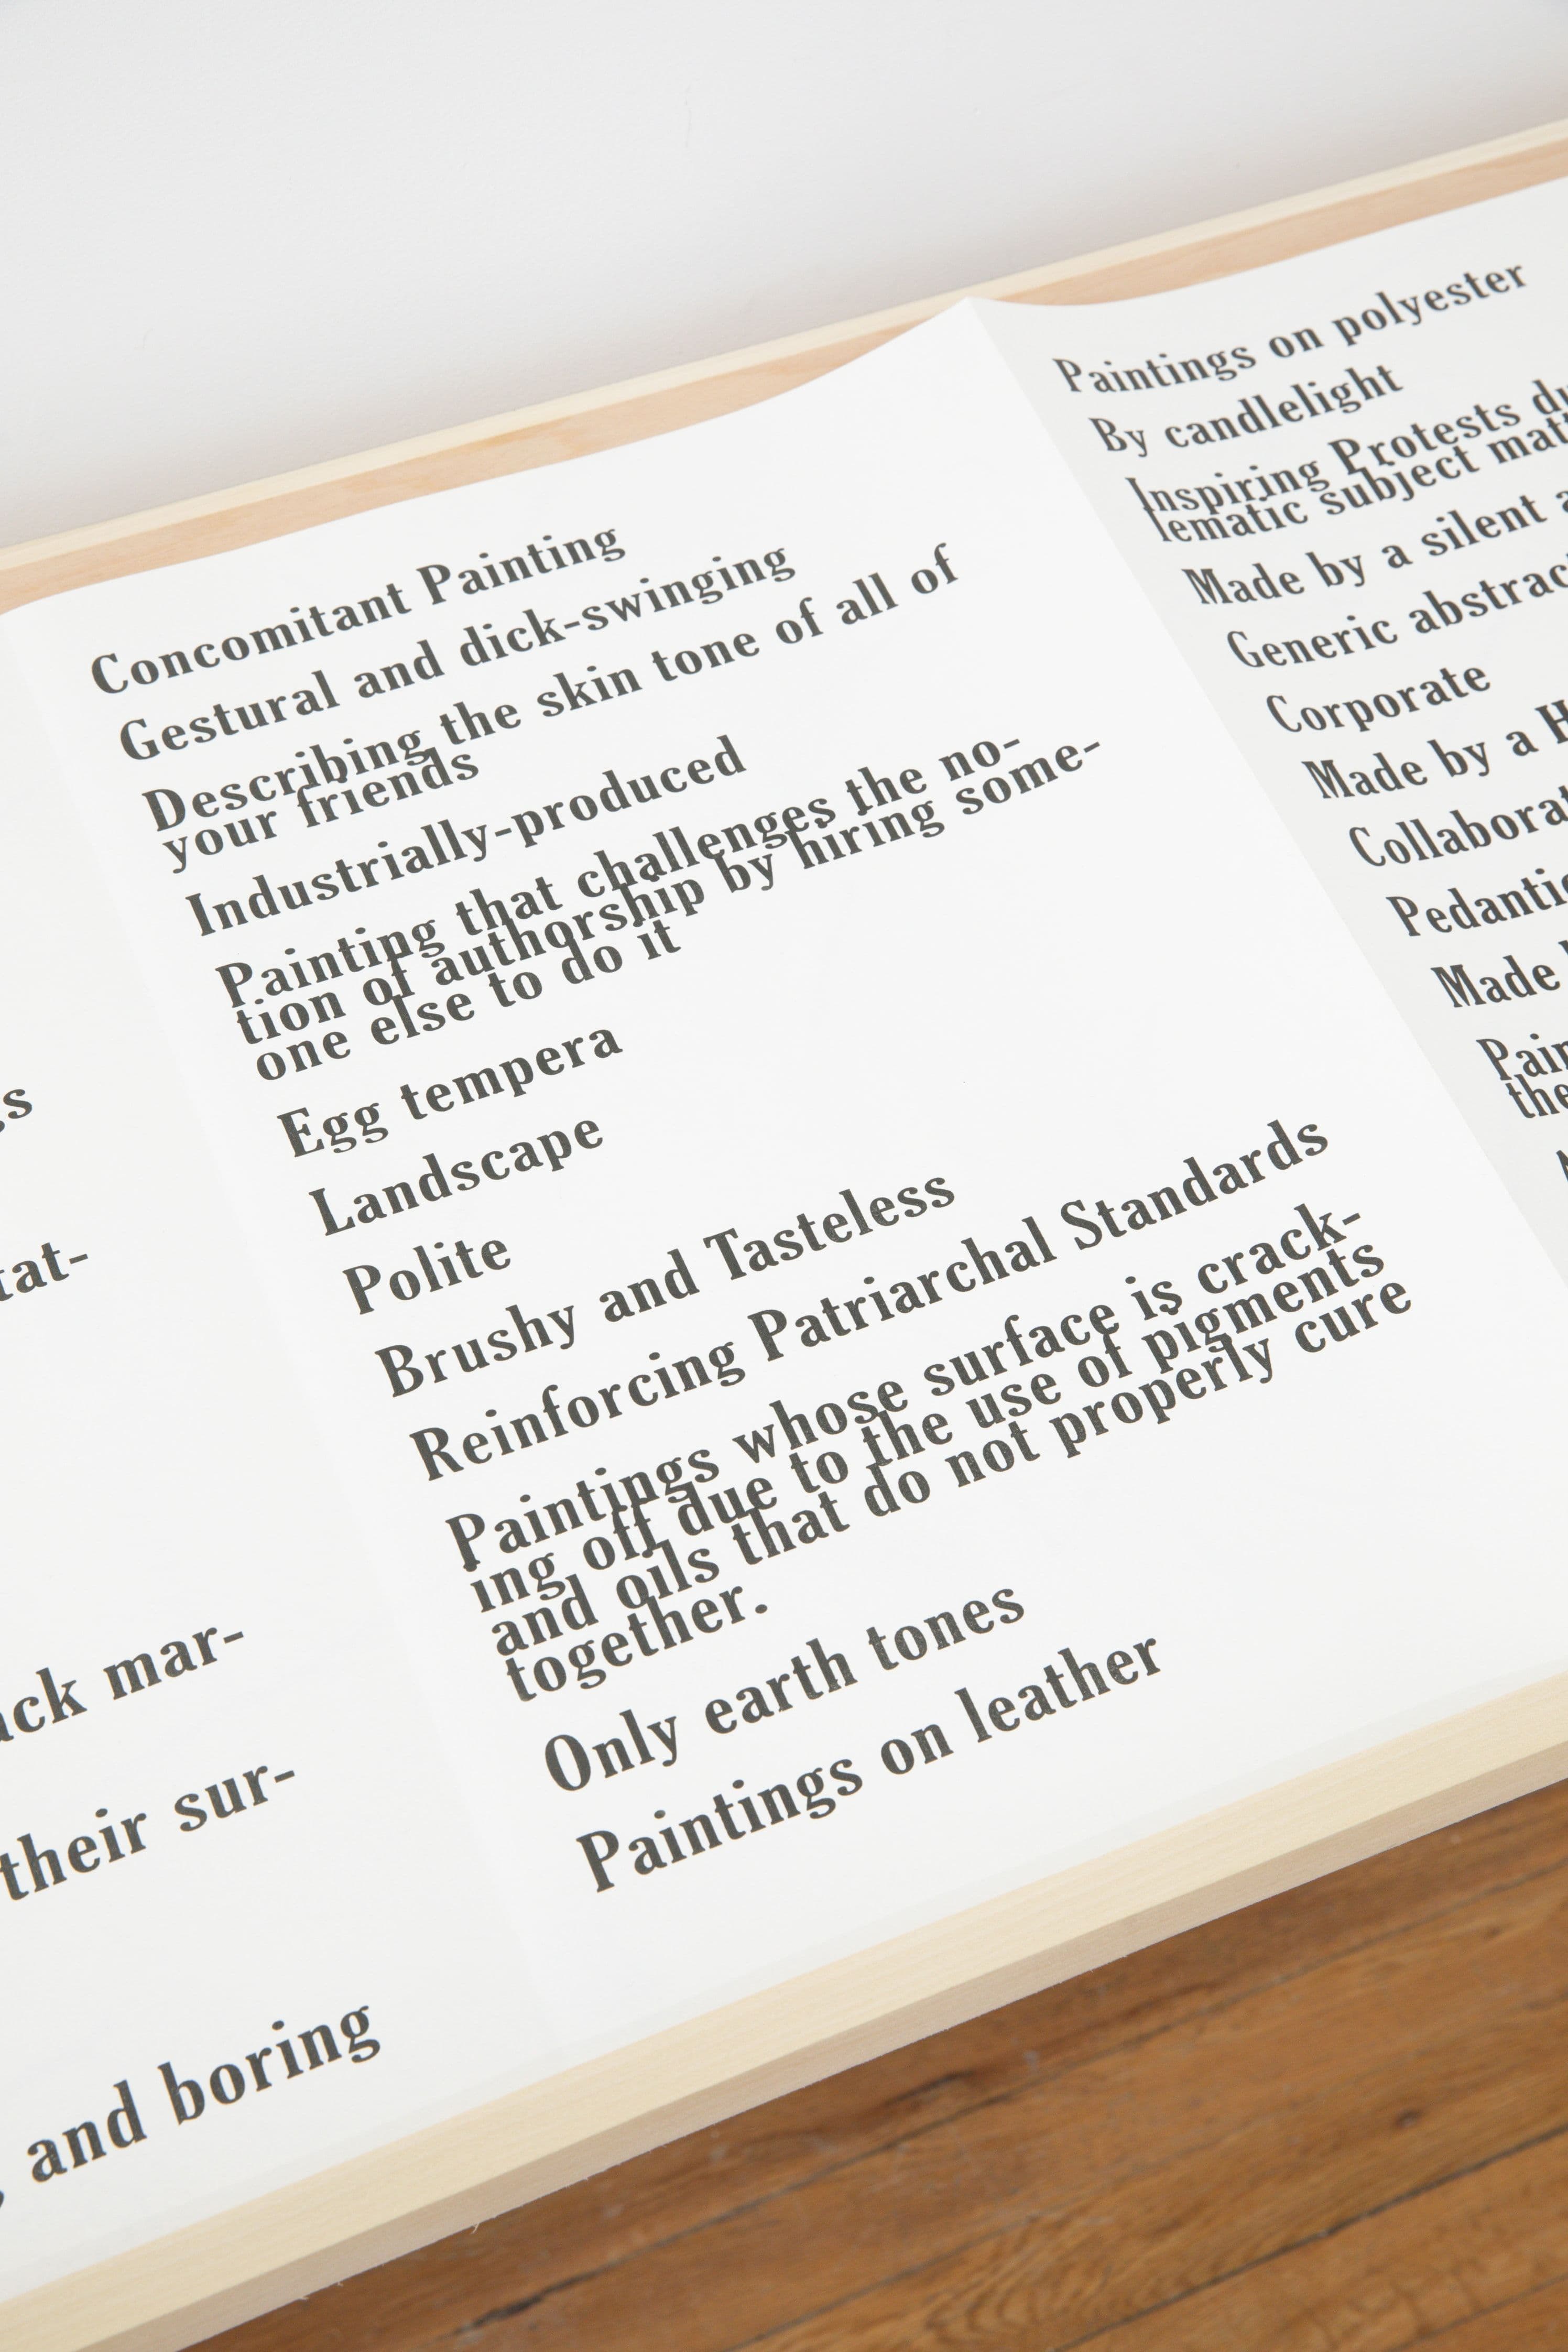 and boring
their sur-
mar-
Concomitant Painting
Gestural and dick-swinging
Describing the skin tone of all of
your friends
Industrially-produced
Painting that challenges the no-
tion of authorship by hiring some-
one else to do it
Egg tempera
Landscape
Polite
Brushy and Tasteless
Reinforcing Patriarchal Standards
Paintings whose surface is crack-
ing off due to the use of pigments
and oils that do not properly cure
together.
Only earth tones
Paintings on leather
Paintings on polyester
By candlelight
Inspiring Protests
subject
Made by a silent
Generic
Corporate
Made by a
Made